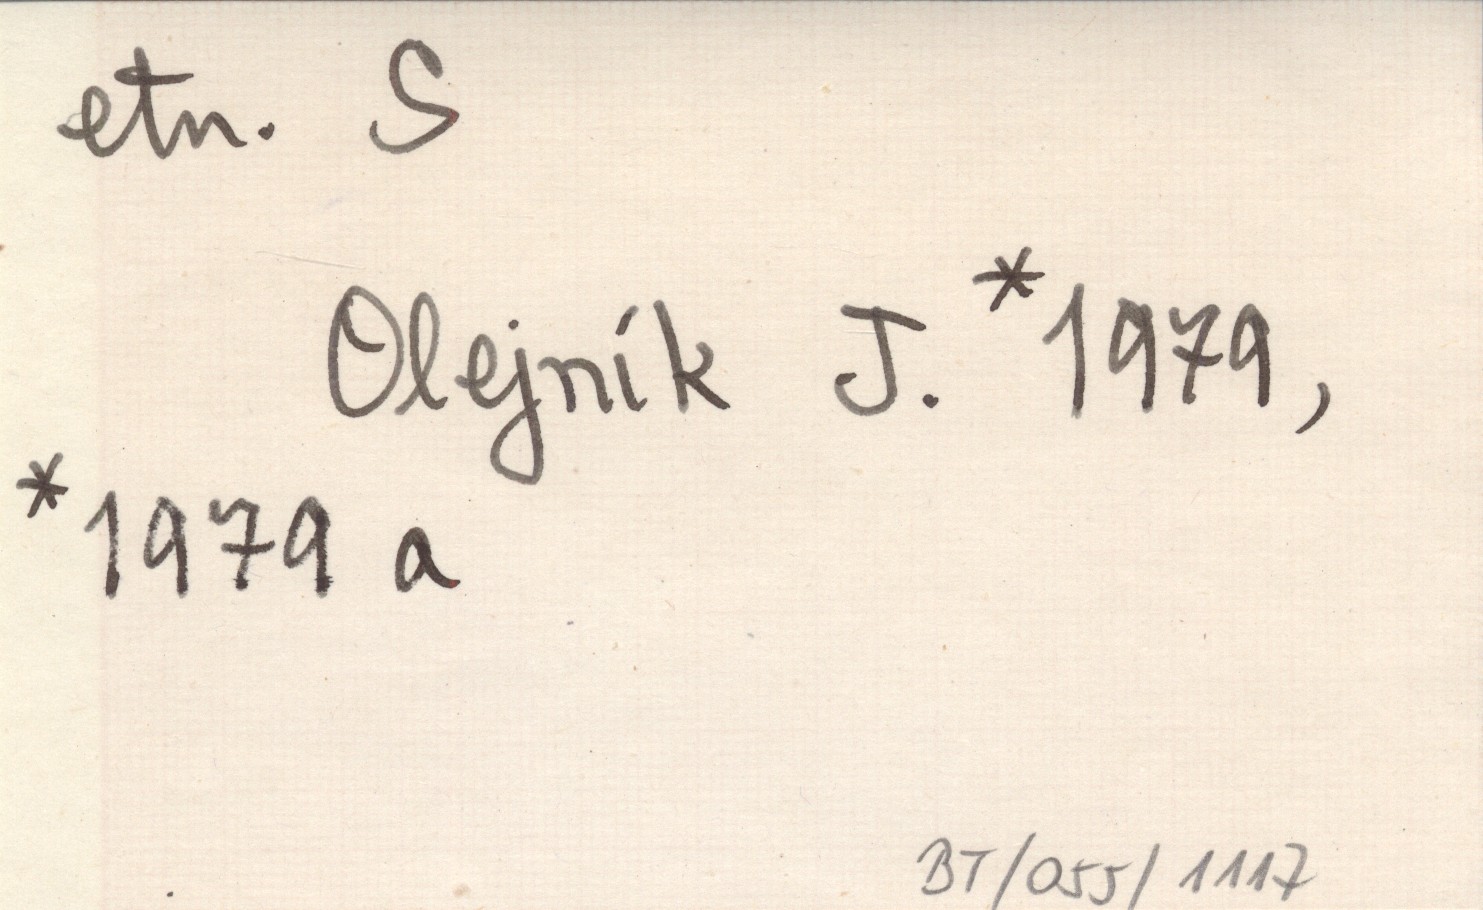 etn. S
Olejník J. *1979,
*1979 a
BT/055/1117